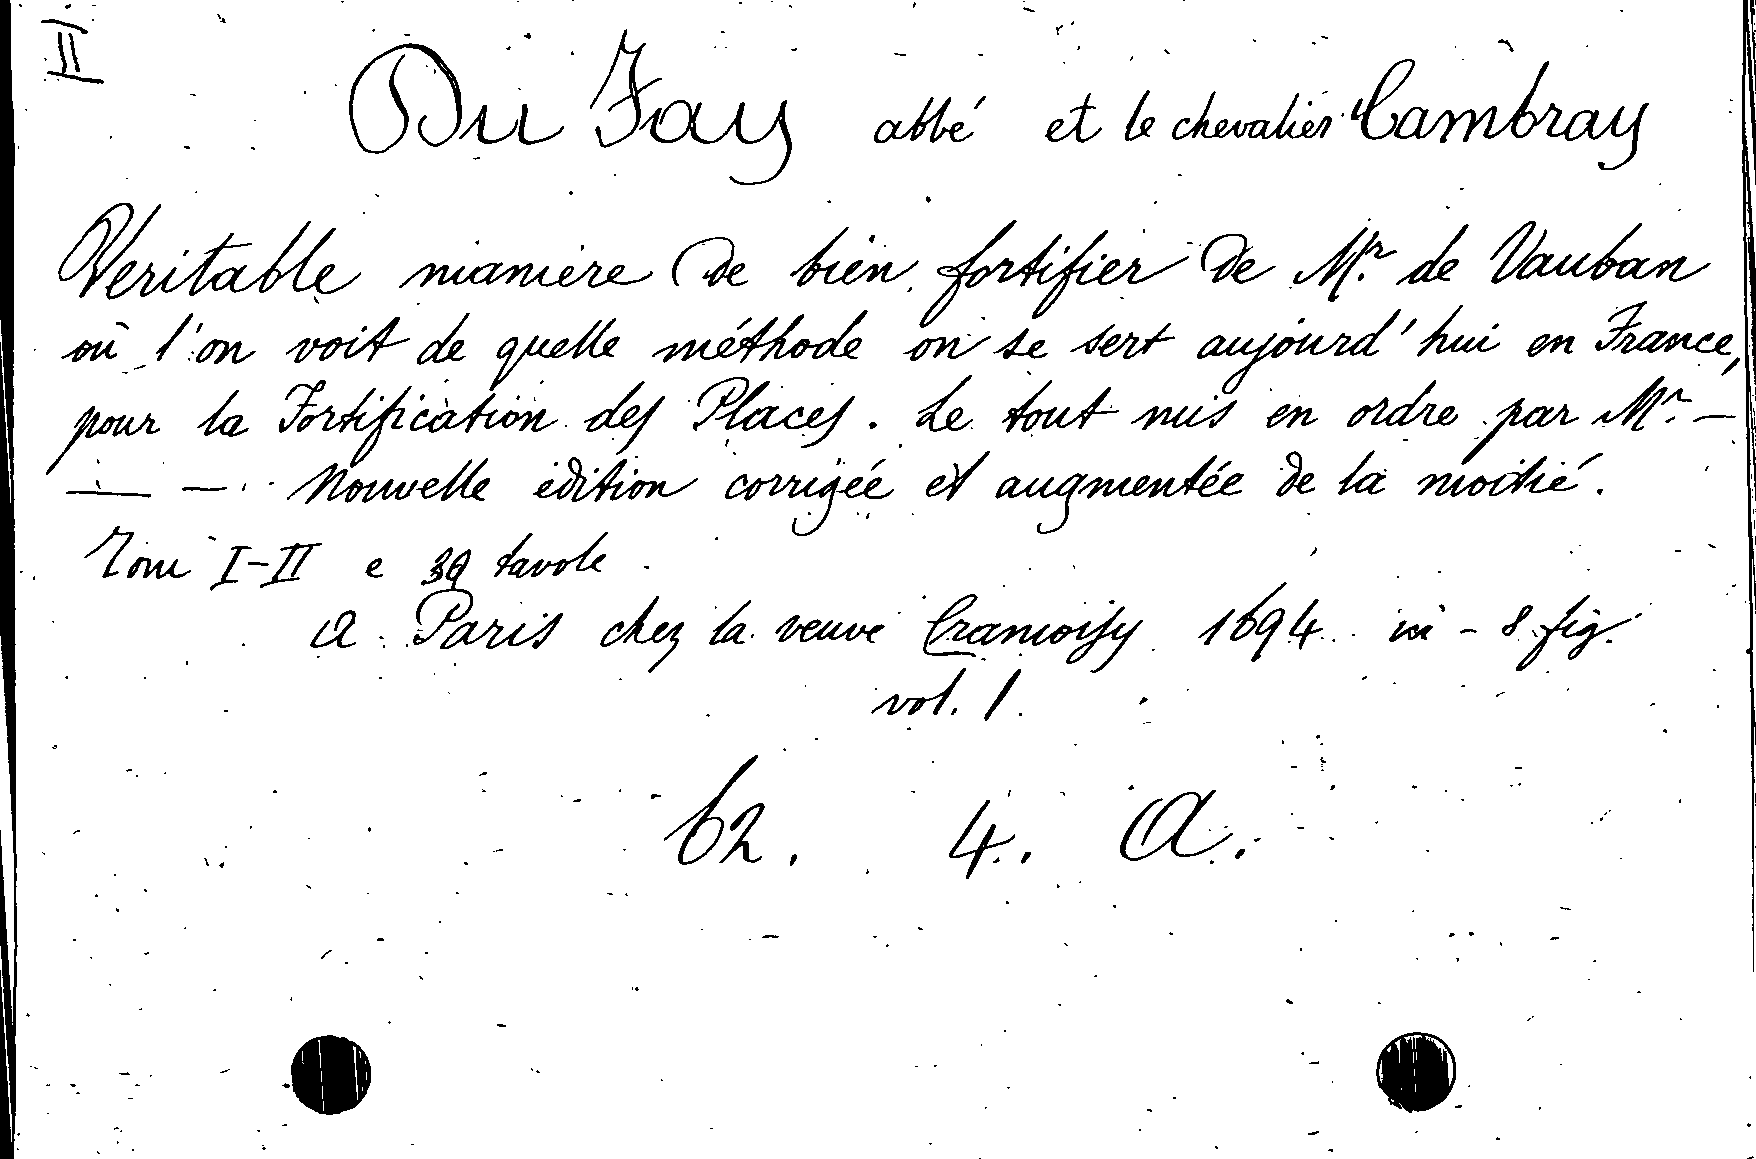 II
Du Fay abbé et le chevalier Cambray
Veritable maniere de bien fortifier de Mr. de Vauban
où l'on voit de quelle méthode on se sert aujourd'hui en France,
pour la Fortification des Places. Le tout mis en ordre par Mr. —
— — Nouvelle edition corrigée et augmentée de la moitié.
Tomi I-II e 39 tavole
A Paris chez la veuve Cramoisy 1694 in-8 fig.
vol. 1.
62. 4. A.